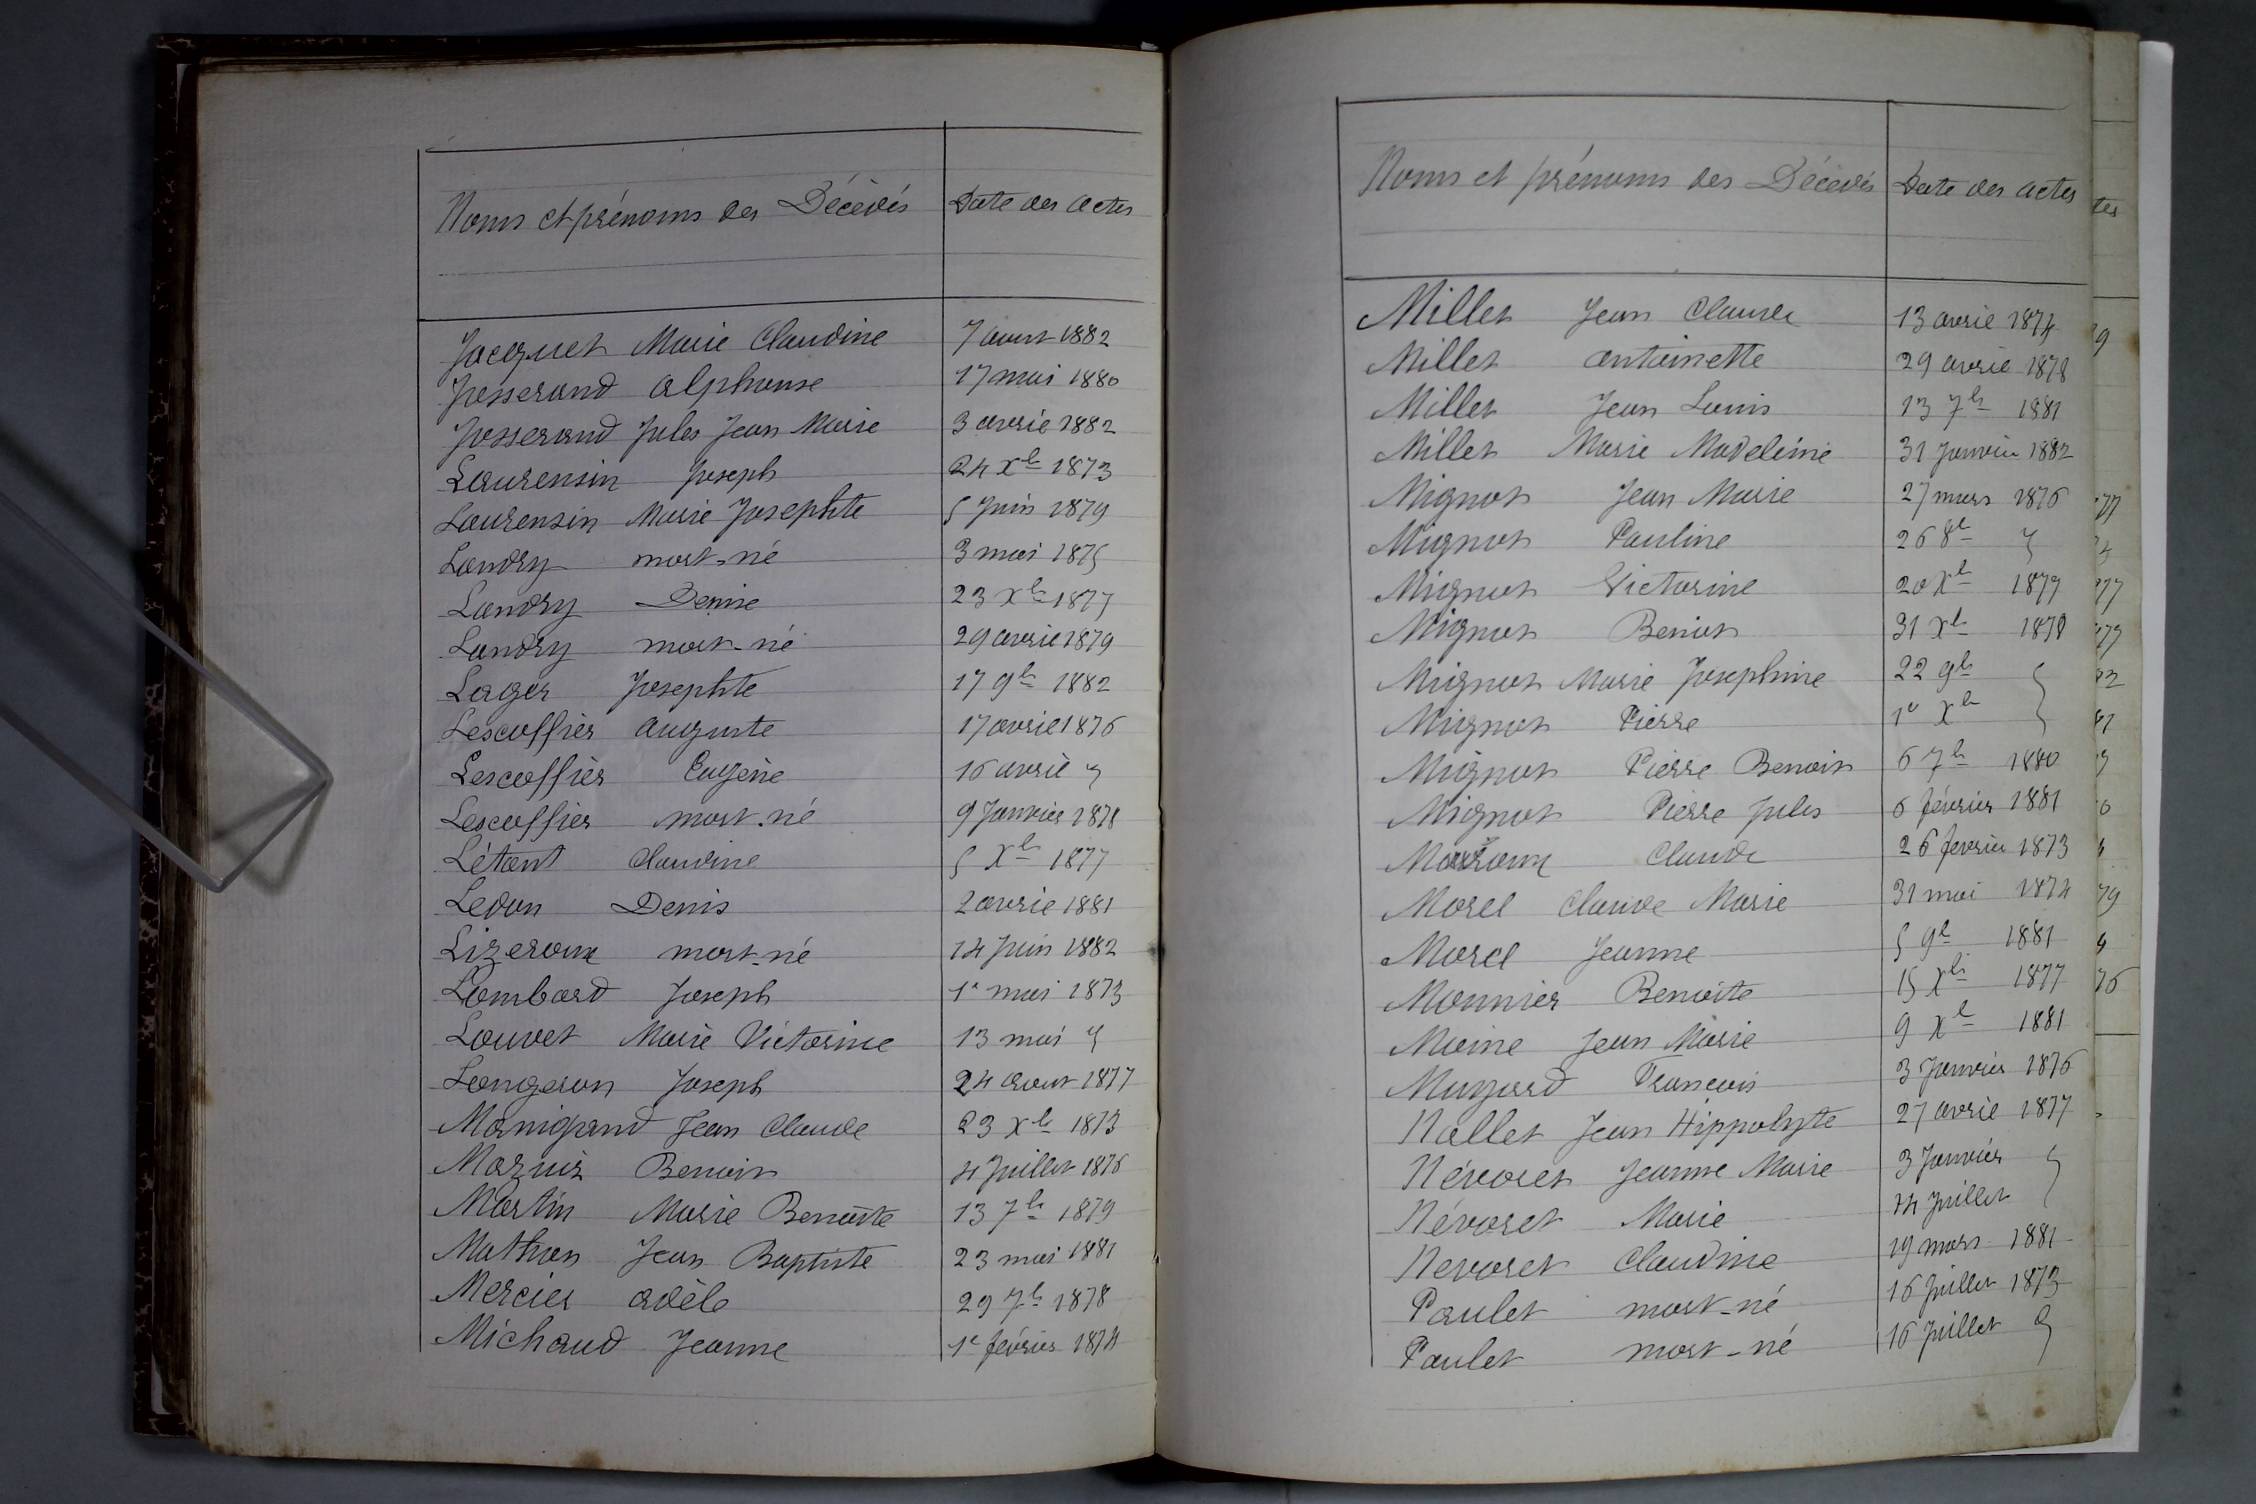 Noms et prénoms des Décédés Date des actes
Jacquet Marie Claudine 7 aout 1882
Josserand Alphonse 17 mai 1880
Josserand Jules Jean Marie 3 avril 1882
Laurensin Joseph 24 Xbe 1873
Laurensin Marie Josephte 5 Juin 1879
Landry mort-né 3 mai 1875
Landry Denise 23 Xbe 1877
Landry mort-né 29 avril 1879
Lager Josephte 17 9be 1882
Lescoffier Auguste 17 avril 1876
Lescoffier Eugène 16 avril "
Lescoffier mort-né 9 Janvier 1878
Létant Claudine 5 Xbe 1877
Ledon Denis 2 avril 1881
Lizeroux mort-né 14 Juin 1882
Lombard Joseph 1e mai 1873
Louvet Marie Victorine 13 mai "
Longeron Joseph 24 aout 1877
Manigand Jean Claude 23 Xbe 1873
Benoit 4 Juillet 1876
Martin Marie Benoite 13 7be 1879
Mathon Jean Baptiste 23 mai 1881
Mercier Adèle 29 7be 1878
Michaud Jeanne 1e février 1874
Noms et prénoms des Décédés Date des actes
Millet Jean Claude 13 avril 1874
Millet Antoinette 29 avril 1878
Millet Jean Louis 13 7be 1881
Millet Marie Madeleine 31 Janvier 1882
Mignot Jean Marie 27 mars 1876
Mignot Pauline 26 8e "
Mignot Victorine 20 Xbe 1877
Mignot Benoit 31 Xbe 1878
Mignot Marie Josephine 22 9be "
Mignot Pierre 1e Xbe "
Mignot Pierre Benoit 6 7be 1880
Mignot Pierre Jules 6 février 1881
Claude 26 fevrier 1873
Morel Claude Marie 31 mai 1874
Morel Jeanne 5 9e 1881
Monnier Benoite 15 Xbe 1877
Moine Jean Marie 9 Xe 1881
Mugnard Francois 3 Janvier 1876
Nallet Jean Hippolyte 27 avril 1877
Névoret Jeanne Marie 3 Janvier "
Névoret Marie 14 Juillet "
Nevoret Claudine 19 mars 1881
Paulet mort-né 16 Juillet 1873
Paulet mort-né 16 Juillet "